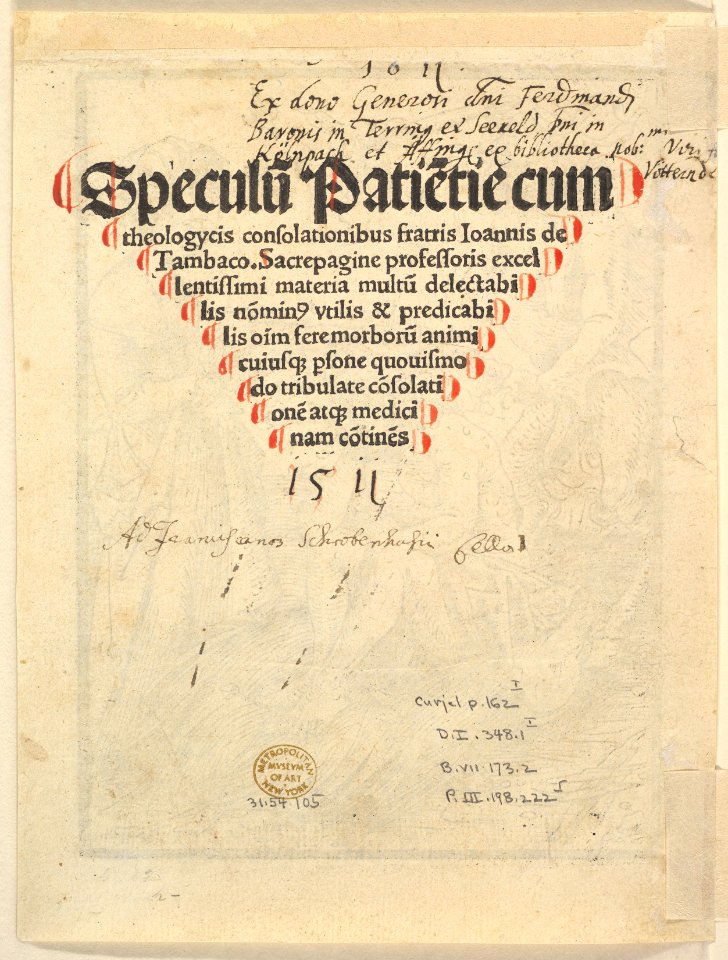 1611
Ex dono Generosi dni Ferdinandi
Baronis in Terring et Seeveld dni in
et bibliotheca nob:
Speculū Patiētie cum
theologycis consolationibus fratris Ioannis de
Tambaco. Sacrepagine professoris excel
lentissimi materia multū delectabi
lis nōminꝰ vtilis & predicabi
lis oīm feremorborū animi
cuiusqꝫ psone quouismo
do tribulate cōsolati
onē atqꝫ medici
nam cōtinēs
1511
Ad Franciscanos
Curjel p. 162 I
D.I. 348.1 I
B.VII.173.2
P.III.198.222 I
METROPOLITAN
MVSEVM
OF ART
NEW YORK
31.54.105